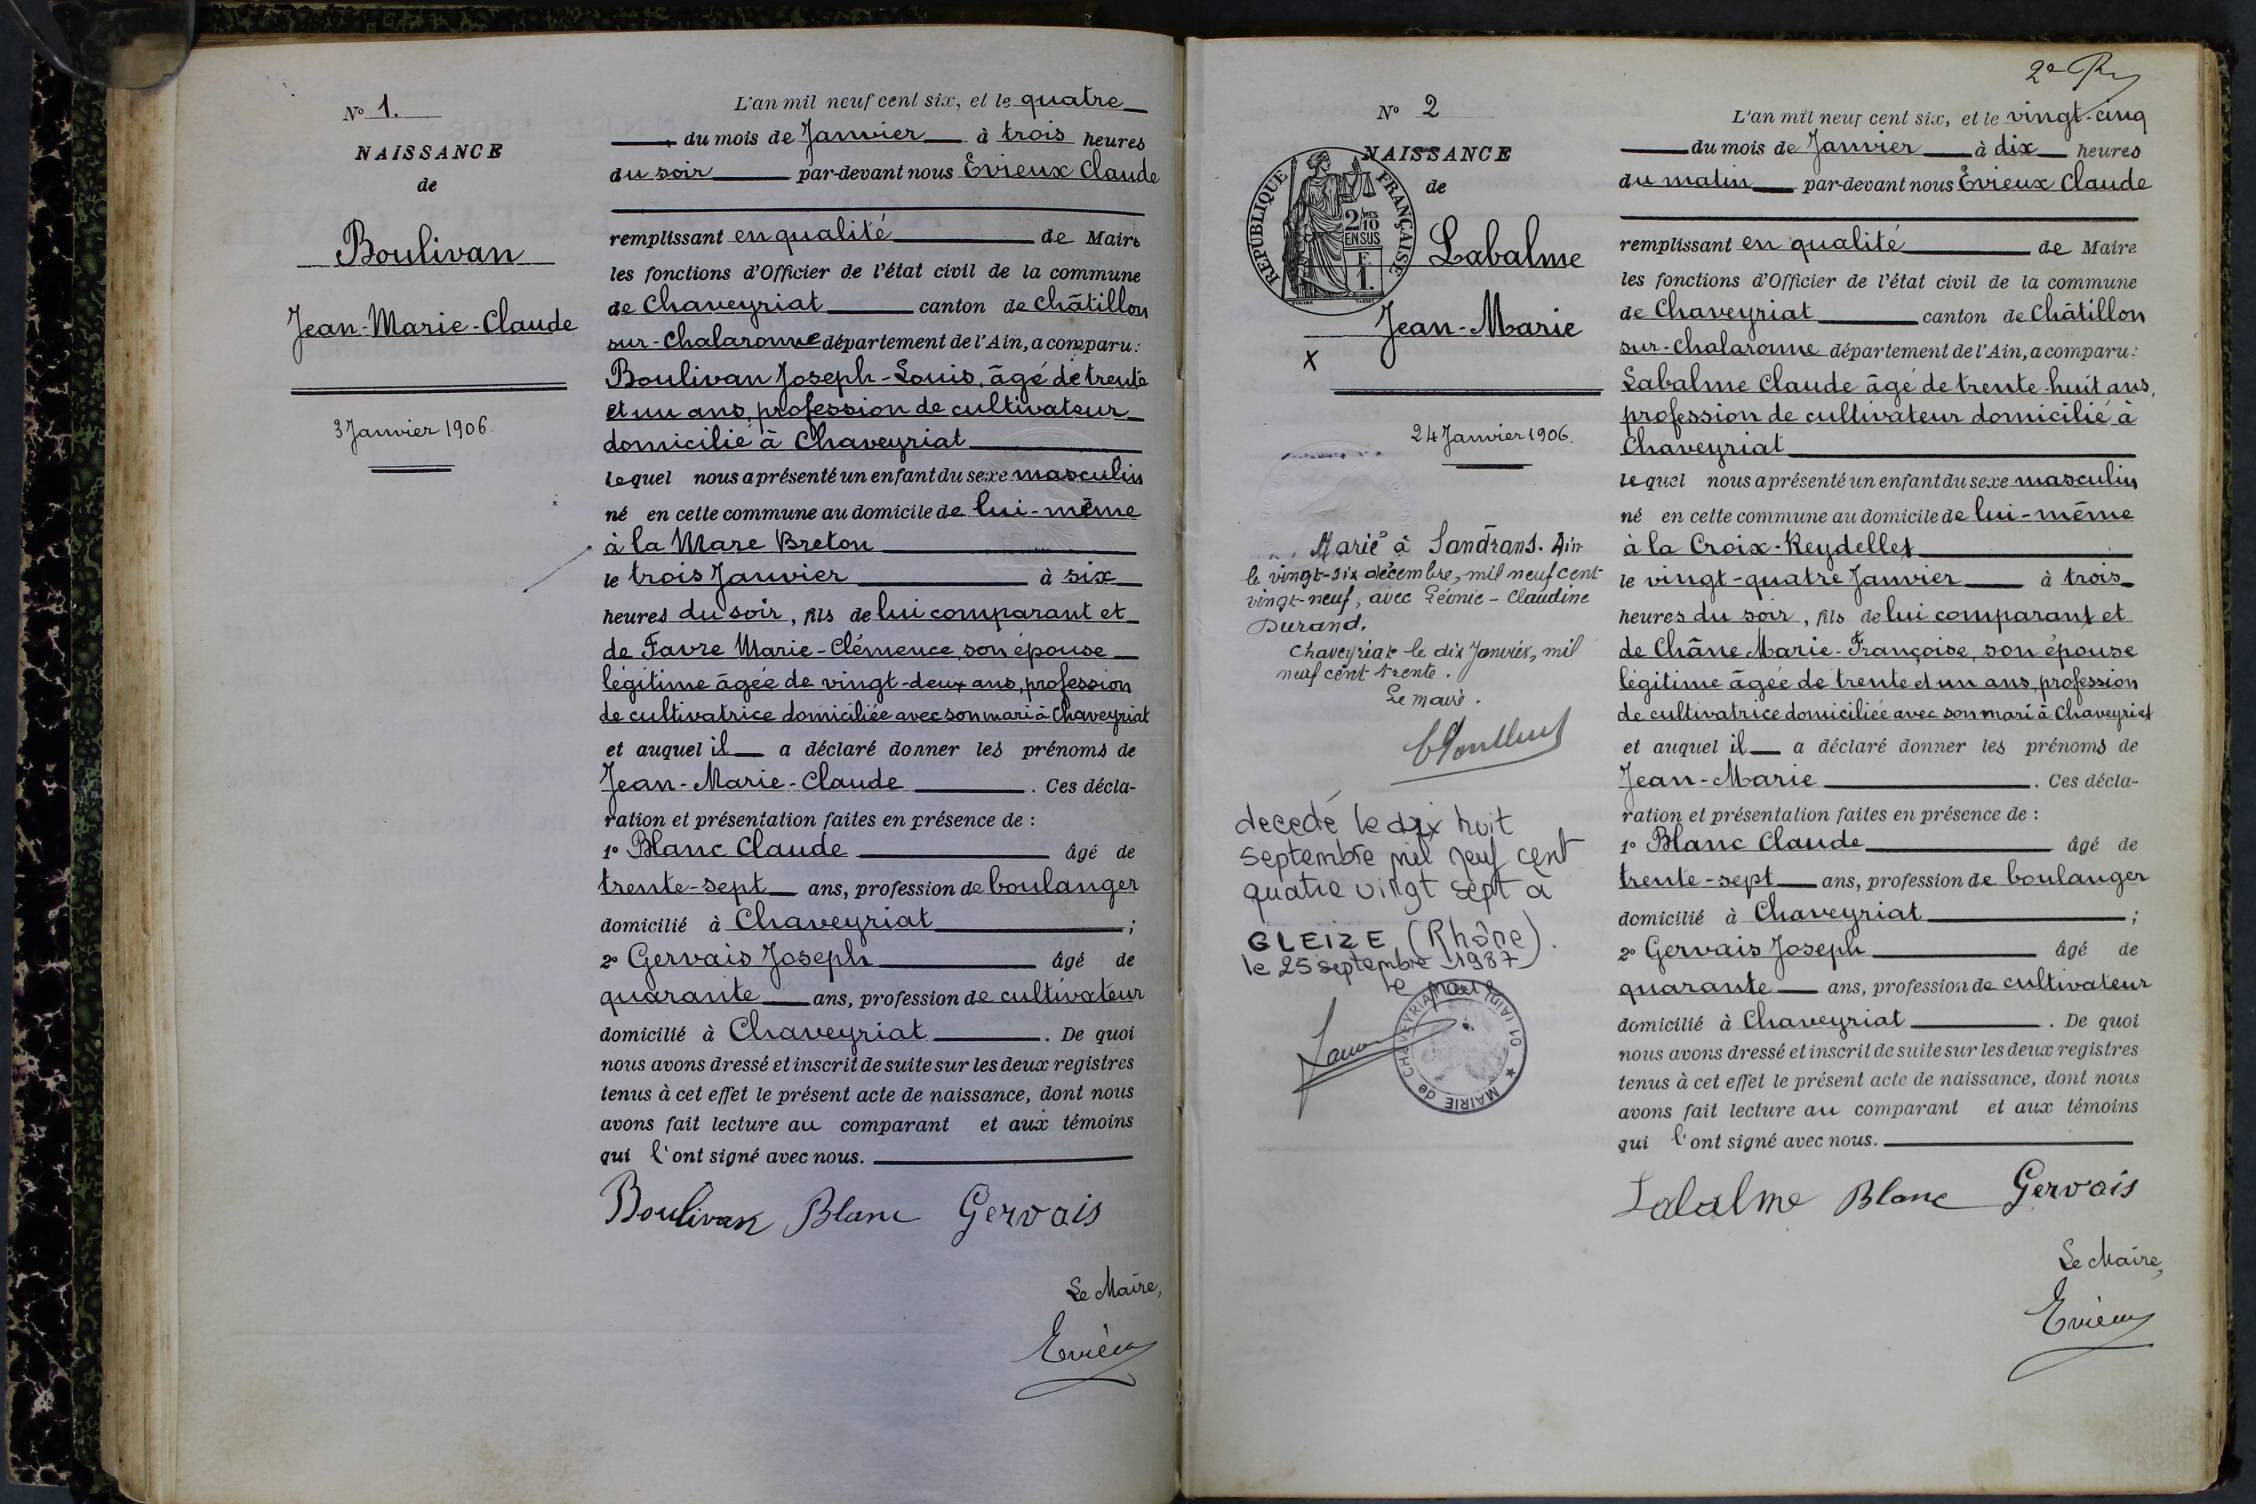 N° 1.
NAISSANCE
de
Boulivan
Jean-Marie-Claude
3 Janvier 1906.
L'an mil neuf cent six, et le quatre
du mois de Janvier à trois heures
du soir par-devant nous Evieux Claude
remplissant en qualité de Maire
les fonctions d'Officier de l'état civil de la commune
de Chaveyriat canton de Châtillon
sur-Chalaronne département de l'Ain, a comparu:
Boulivan Joseph-Louis, âgé de trente
et un ans, profession de cultivateur
domicilié à Chaveyriat
lequel nous a présenté un enfant du sexe masculin
né en cette commune au domicile de lui-même
à la Mare Breton
le trois Janvier à six
heures du soir, fils de lui comparant et
de Favre Marie-Clémence, son épouse
légitime âgée de vingt-deux ans, profession
de cultivatrice domiciliée avec son mari à Chaveyriat
et auquel il a déclaré donner les prénoms de
Jean-Marie-Claude. Ces décla-
ration et présentation faites en présence de :
1° Blanc Claude âgé de
trente-sept ans, profession de boulanger
domicilié à Chaveyriat ;
2° Gervais Joseph âgé de
quarante ans, profession de cultivateur
domicilié à Chaveyriat. De quoi
nous avons dressé et inscrit de suite sur les deux registres
tenus à cet effet le présent acte de naissance, dont nous
avons fait lecture au comparant et aux témoins
qui l'ont signé avec nous.
Boulivan Blanc Gervais
Le Maire,
Evieux
2e
N° 2
NAISSANCE
de
RÉPUBLIQUE FRANÇAISE
2/10 MES
EN SUS
F.
1.
Labalme
Jean-Marie
X
24 Janvier 1906.
Marié à Sandrans. Ain
le vingt-six décembre, mil neuf cent
vingt-neuf, avec Léonie-Claudine
Durand.
Chaveyriat le dix Janvier, mil
neuf cent trente.
Le maire.
decedé le dix huit
septembre mil neuf cent
quatre vingt sept a
GLEIZE (Rhône).
le 25 septembre 1987
le Maire
MAIRIE de CHAVEYRIAT (Ain) 01
L'an mil neuf cent six, et le vingt-cinq
du mois de Janvier à dix heures
du matin par-devant nous Evieux Claude
remplissant en qualité de Maire
les fonctions d'Officier de l'état civil de la commune
de Chaveyriat canton de Châtillon
sur-Chalaronne département de l'Ain, a comparu:
Labalme Claude âgé de trente-huit ans,
profession de cultivateur domicilié à
Chaveyriat
lequel nous a présenté un enfant du sexe masculin
né en cette commune au domicile de lui-même
à la Croix-Reydellet
le vingt-quatre Janvier à trois
heures du soir, fils de lui comparant et
de Châne Marie-Françoise, son épouse
légitime âgée de trente et un ans, profession
de cultivatrice domiciliée avec son mari à Chaveyriat
et auquel il a déclaré donner les prénoms de
Jean-Marie. Ces décla-
ration et présentation faites en présence de :
1° Blanc Claude âgé de
trente-sept ans, profession de boulanger
domicilié à Chaveyriat ;
2° Gervais Joseph âgé de
quarante ans, profession de cultivateur
domicilié à Chaveyriat. De quoi
nous avons dressé et inscrit de suite sur les deux registres
tenus à cet effet le présent acte de naissance, dont nous
avons fait lecture au comparant et aux témoins
qui l'ont signé avec nous.
Labalme Blanc Gervais
Le Maire,
Evieux